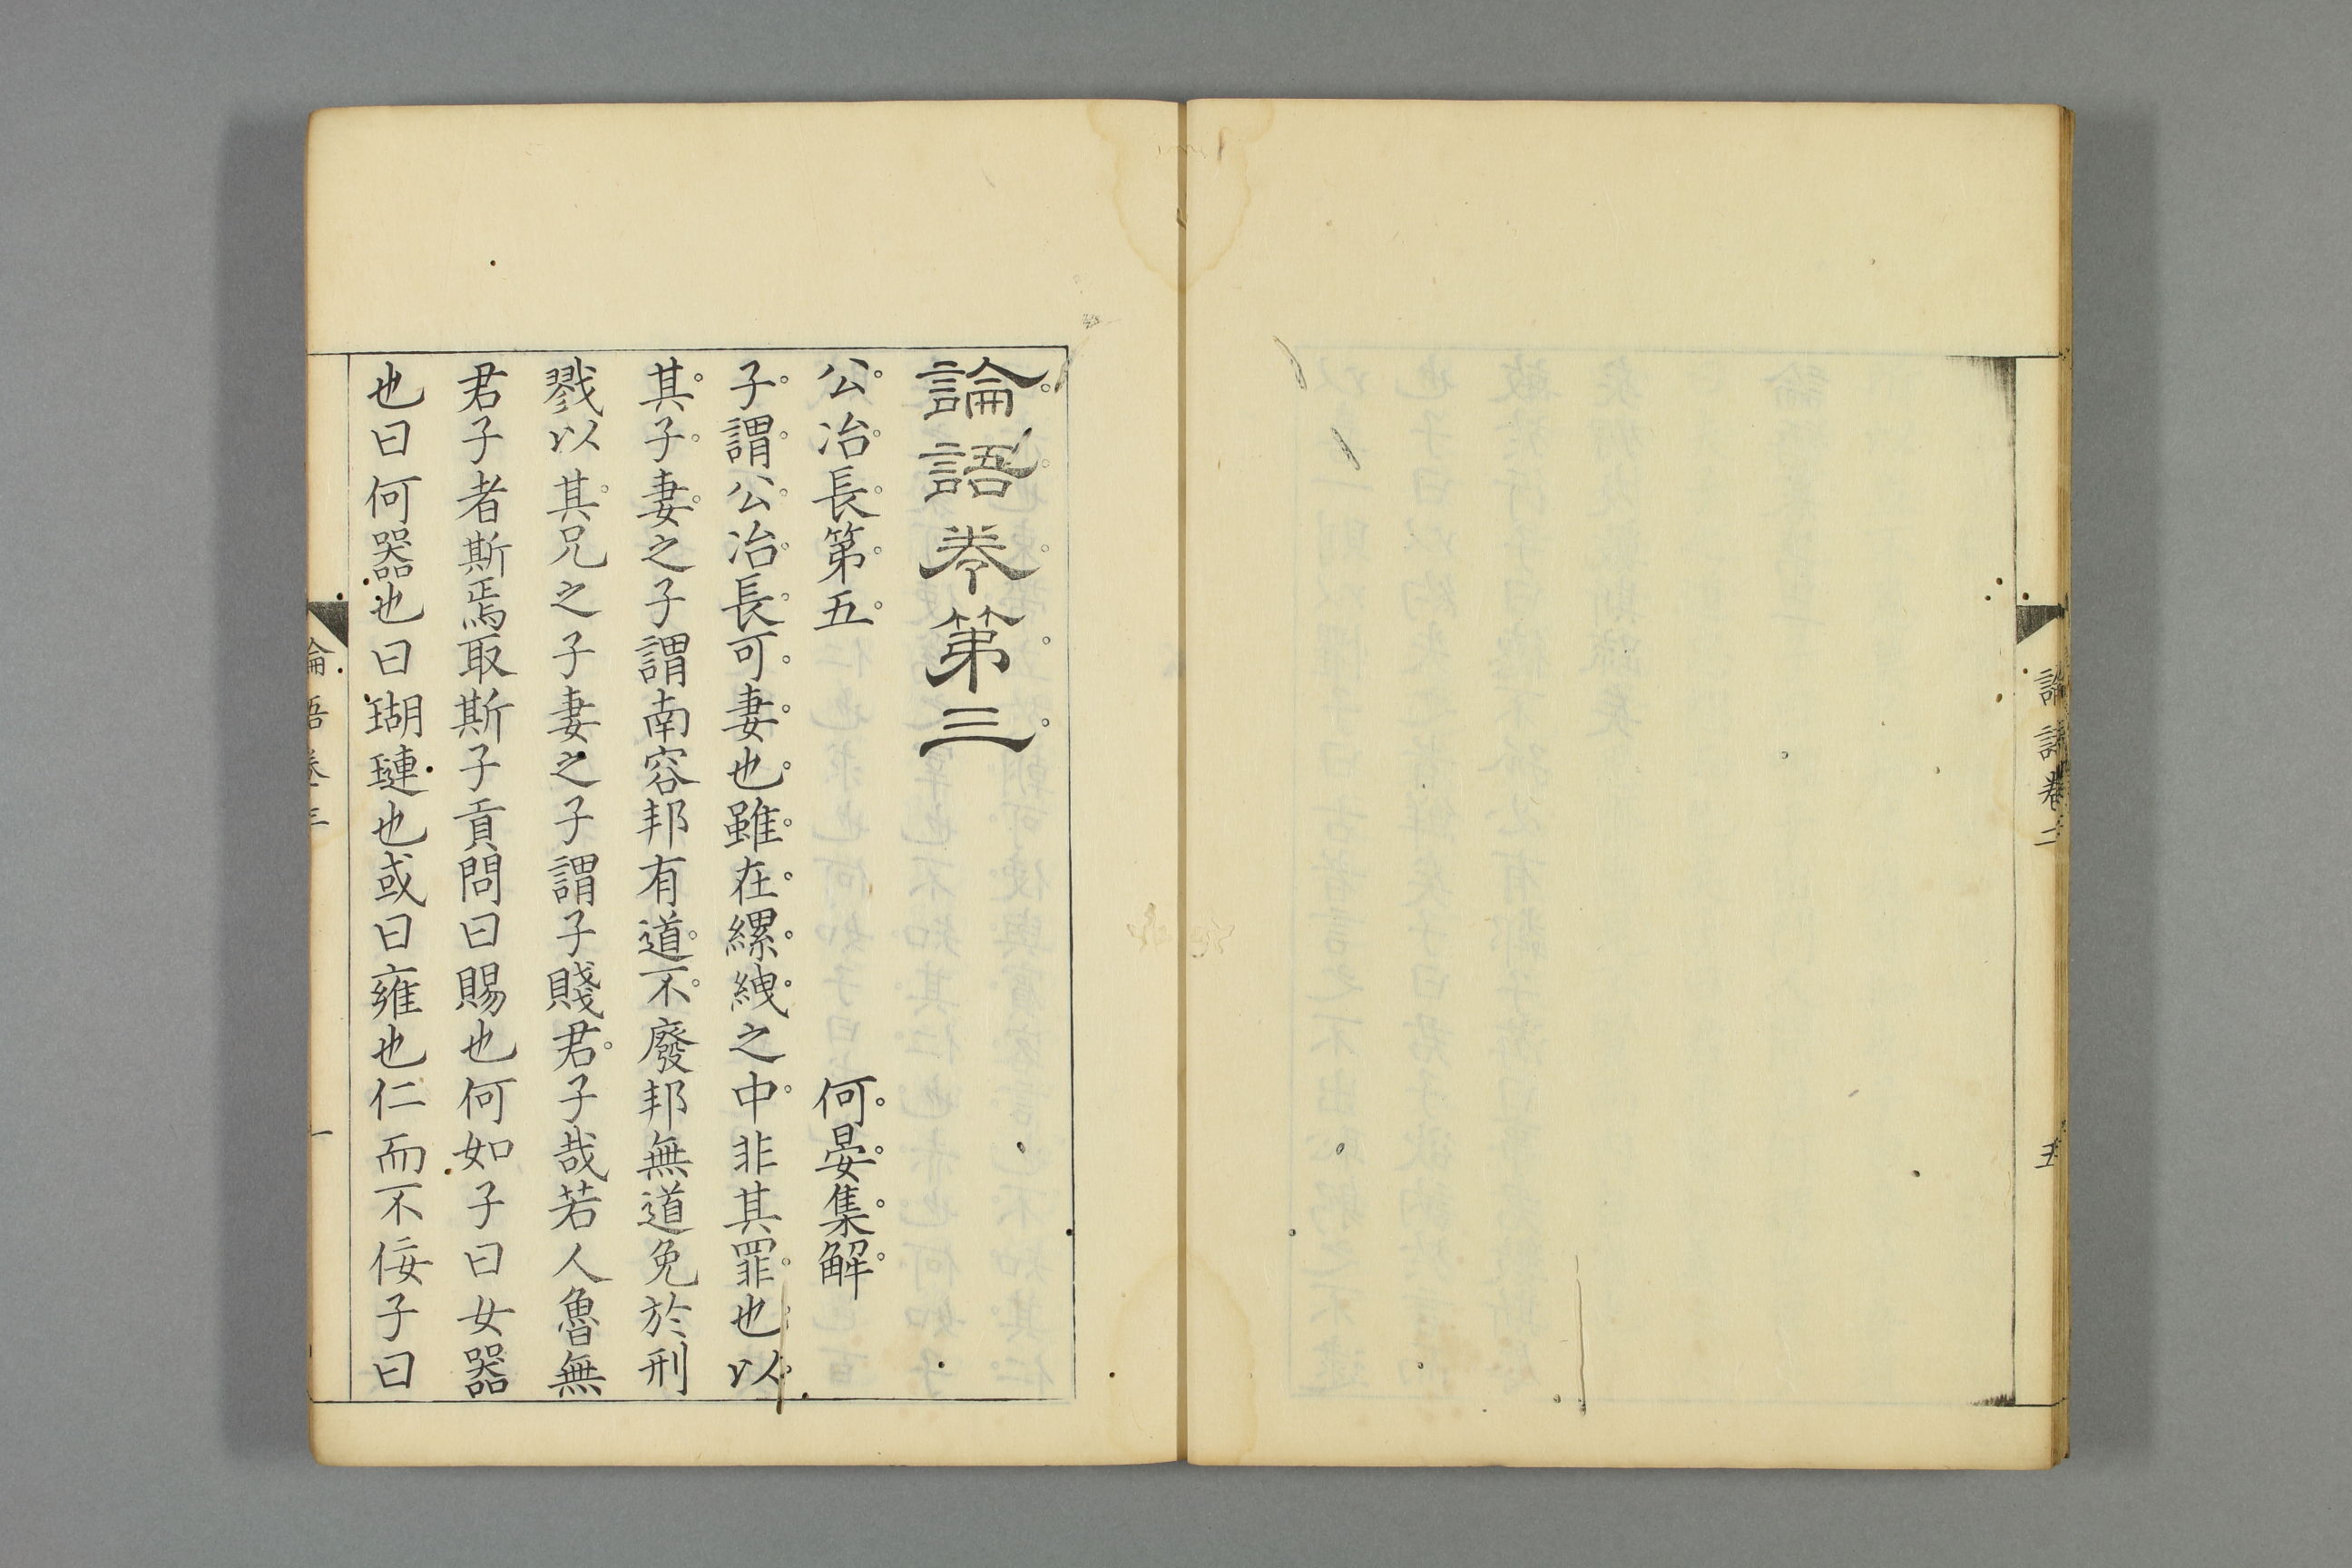 論語卷二
五
論語卷第三
公冶長第五 何晏集解
子謂公冶長可妻也雖在縲絏之中非其罪也以
其子妻之子謂南容邦有道不廢邦無道免於刑
戮以其兄之子妻之子謂子賤君子哉若人魯無
君子者斯焉取斯子貢問曰賜也何如子曰女器
也曰何器也曰瑚璉也或曰雍也仁而不佞子曰
論語卷三
一